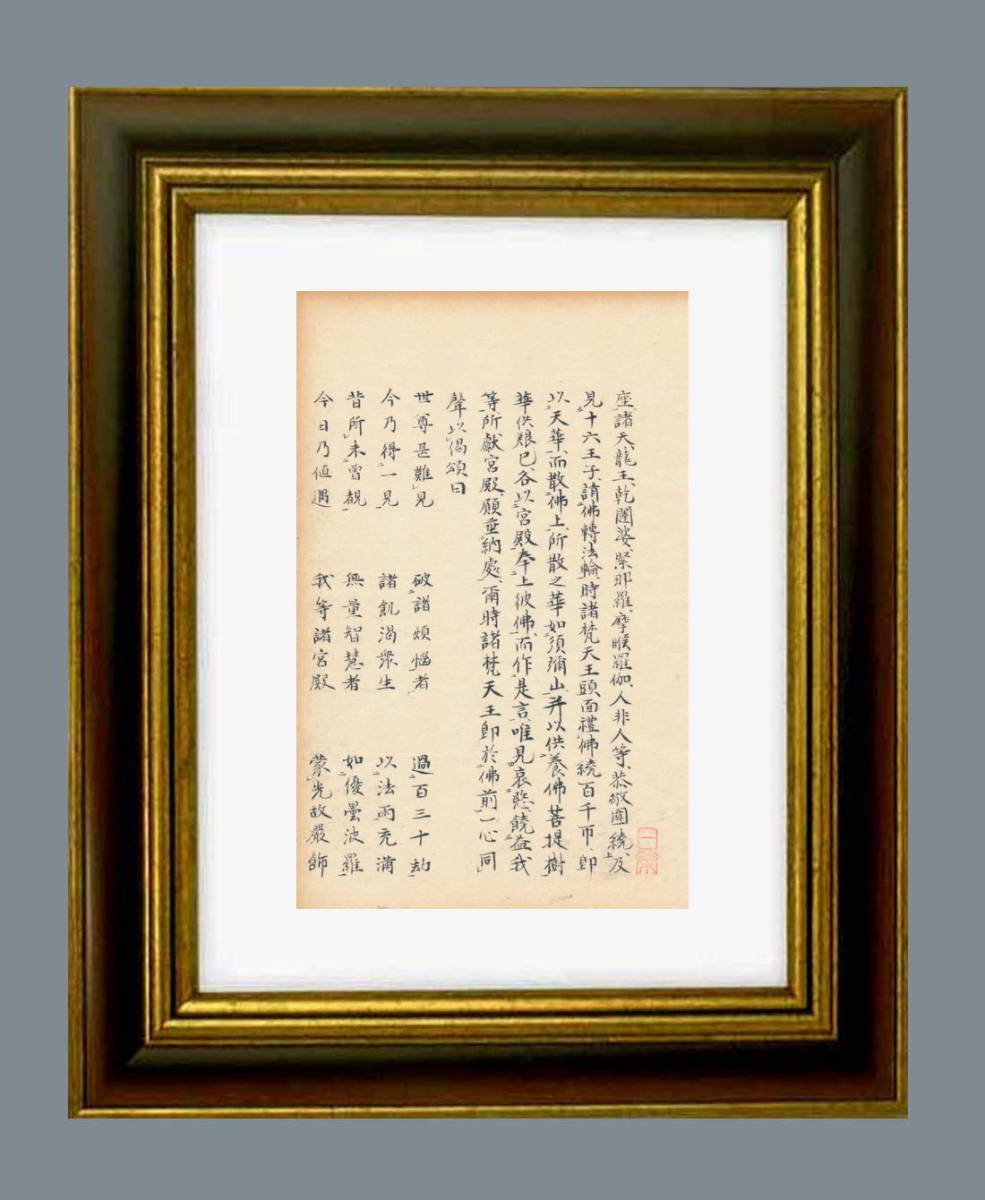 座諸天龍王乾闥婆緊那羅摩睺羅伽人非人等恭敬圍繞及
見十六王子請佛轉法輪時諸梵天王頭面禮佛繞百千帀即
以天華而散佛上所散之華如須彌山并以供養佛菩提樹
華供飬已各以宮殿奉上彼佛而作是言唯見哀愍饒益我
等所獻宮殿願垂納處爾時諸梵天王即於佛前一心同
聲以偈頌曰
世尊甚難見 破諸煩惱者 過百三十劫
今乃得一見 諸飢渴眾生 以法雨充滿
昔所未曾覩 無量智慧者 如優曇波羅
今日乃值遇 我等諸宮殿 蒙光故嚴飾